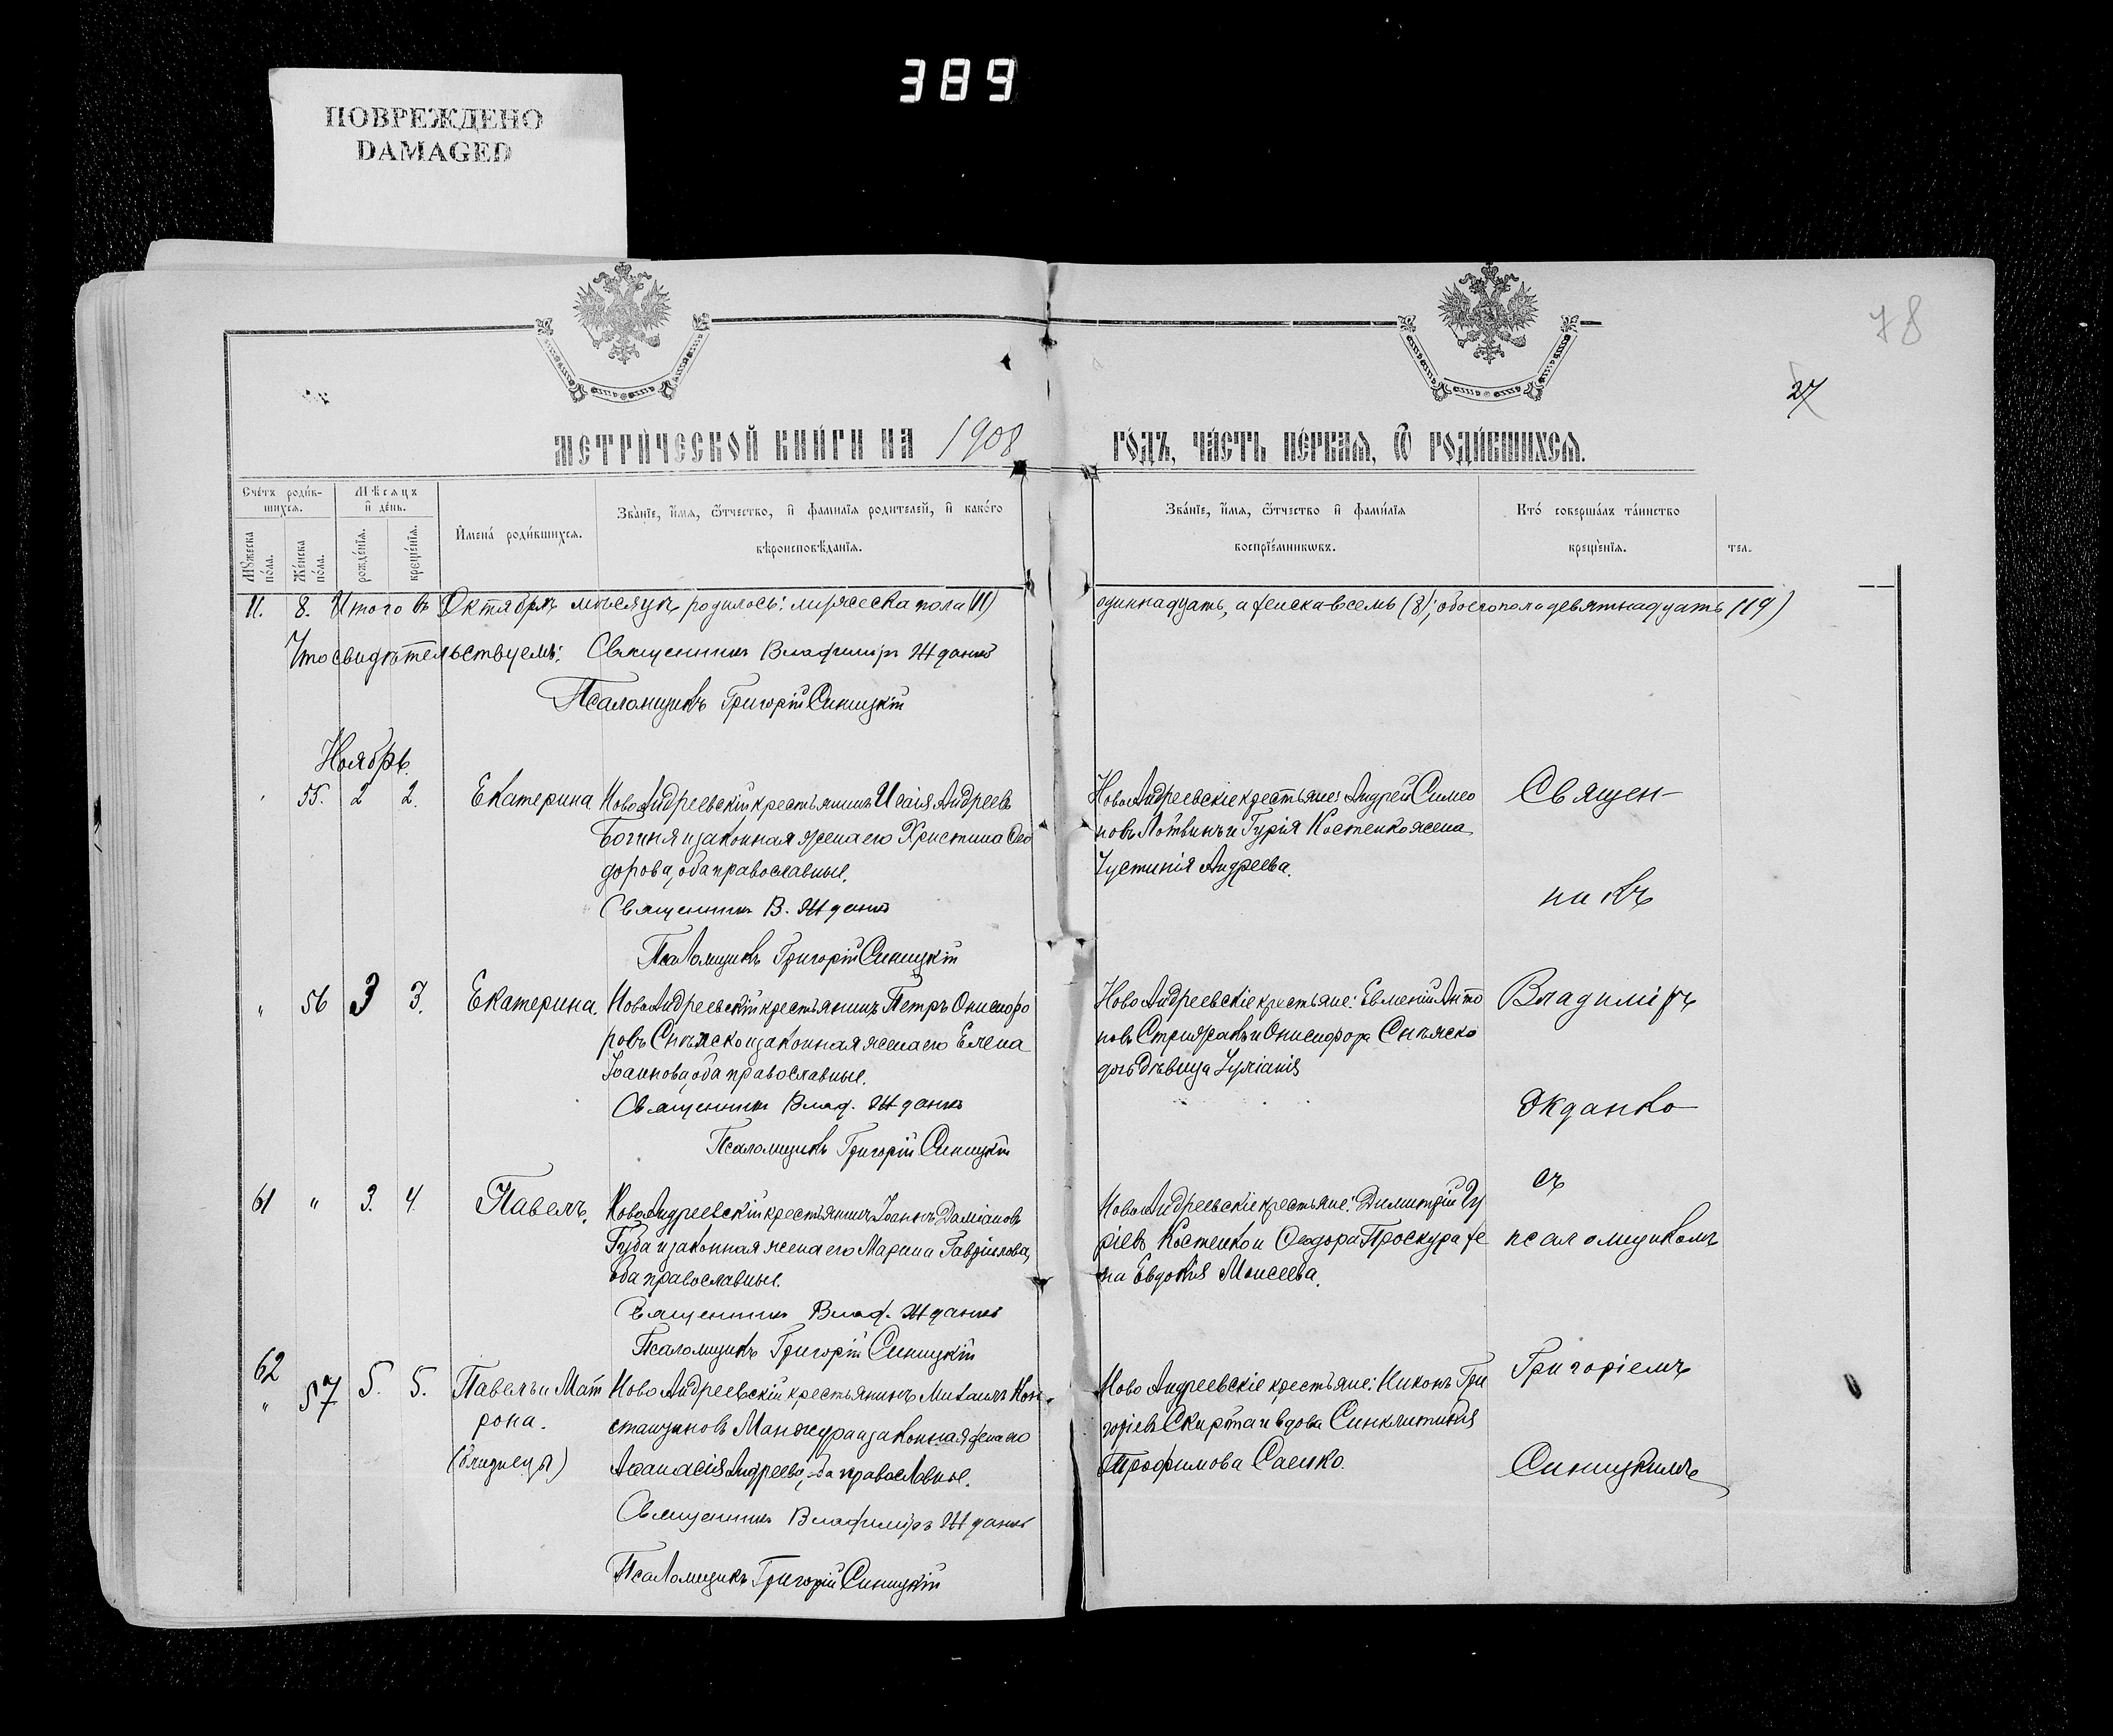 389
ПОВРЕЖДЕНО
DAMAGED
78
27
МЕТРИ́ЧЕСКОЙ КНИ́ГИ НА 1908 ГО́ДЪ, ЧА́СТЬ ПЕ́РВАЯ, Ѿ РОДИ́ВШИХСЯ.
Сче́тъ роди́в-
шихся.
Мѣсяцъ
и де́нь.
Мꙋ́жеска
по́ла.
Же́нска
по́ла.
рожде́нїя.
креще́нїя.
И҆мена́ роди́вшихся.
Зва́нїе, и҆́мя, ѻ҆́тчество, и҆ фами́лїя роди́телей, и҆ како́гѡ
вѣроисповѣ́данїя.
Зва́нїе, и҆́мя, ѻ҆́тчество и҆ фами́лїя
воспрїе́мникѡвъ.
Кто́ соверша́лъ та́инство
креще́нїя.
тел.
11. 8. Итого въ Октябрѣ мѣсяцѣ родилось: мужеска пола (11) одиннадцать, а женска-восемь (8); обоего пола девятнадцать (19)
Что свидѣтельствуемъ: Священникъ Владиміръ Жданко
Псаломщикъ Григорій Синицкій
Ноябрь.
55. 2 2. Екатерина Ново Андреевскій крестьянинъ Исаія Андреевъ
Богиня и законная жена его Христина Ѳео
дорова, оба православные.
Священникъ В. Жданко
Псаломщикъ Григорій Синицкій
Ново Андреевскіе крестьяне: Андрей Симео
новъ Лотвинъ и Гурія Костенко жена
Іустинія Андреева.
Священ-
никъ
" 56 3 3. Екатерина. Ново Андреевскій крестьянинъ Петръ Онисифо
ровъ Снѣжско и законная жена его Елена
Іоаннова, оба православные.
Священникъ Влад. Жданко
Псаломщикъ Григорій Синицкій
Ново Андреевскіе крестьяне: Евменій Анто
новъ Стрижакъ и Онисифора Снѣжско
дочь дѣвица Іуліанія
Владиміръ
Жданко
61 " 3. 4. Павелъ. Ново Андреевскій крестьянинъ Іоаннъ Даміановъ
Губа и законная жена его Марина Гавріилова,
оба православные.
Священникъ Влад. Жданко
Псаломщикъ Григорій Синицкій
Ново Андреевскіе крестьяне: Димитрій Гу
ріевъ Костенко и Ѳеодора Проскура же
на Евдокія Моисеева.
съ
псаломщикомъ
62
" 57 5. 5. Павелъ и Мат Ново Андреевскій крестьянинъ Михаилъ Кон-
рона. стантиновъ Манжура и законная жена его
(близнецы) Аѳанасія Андреева, оба православные.
Священникъ Владиміръ Жданко
Псаломщикъ Григорій Синицкій
Ново Андреевскіе крестьяне: Никонъ Гри
горіевъ Скирта и вдова Синклитикія
Трофимова Саенко.
Григоріемъ
Синицкимъ